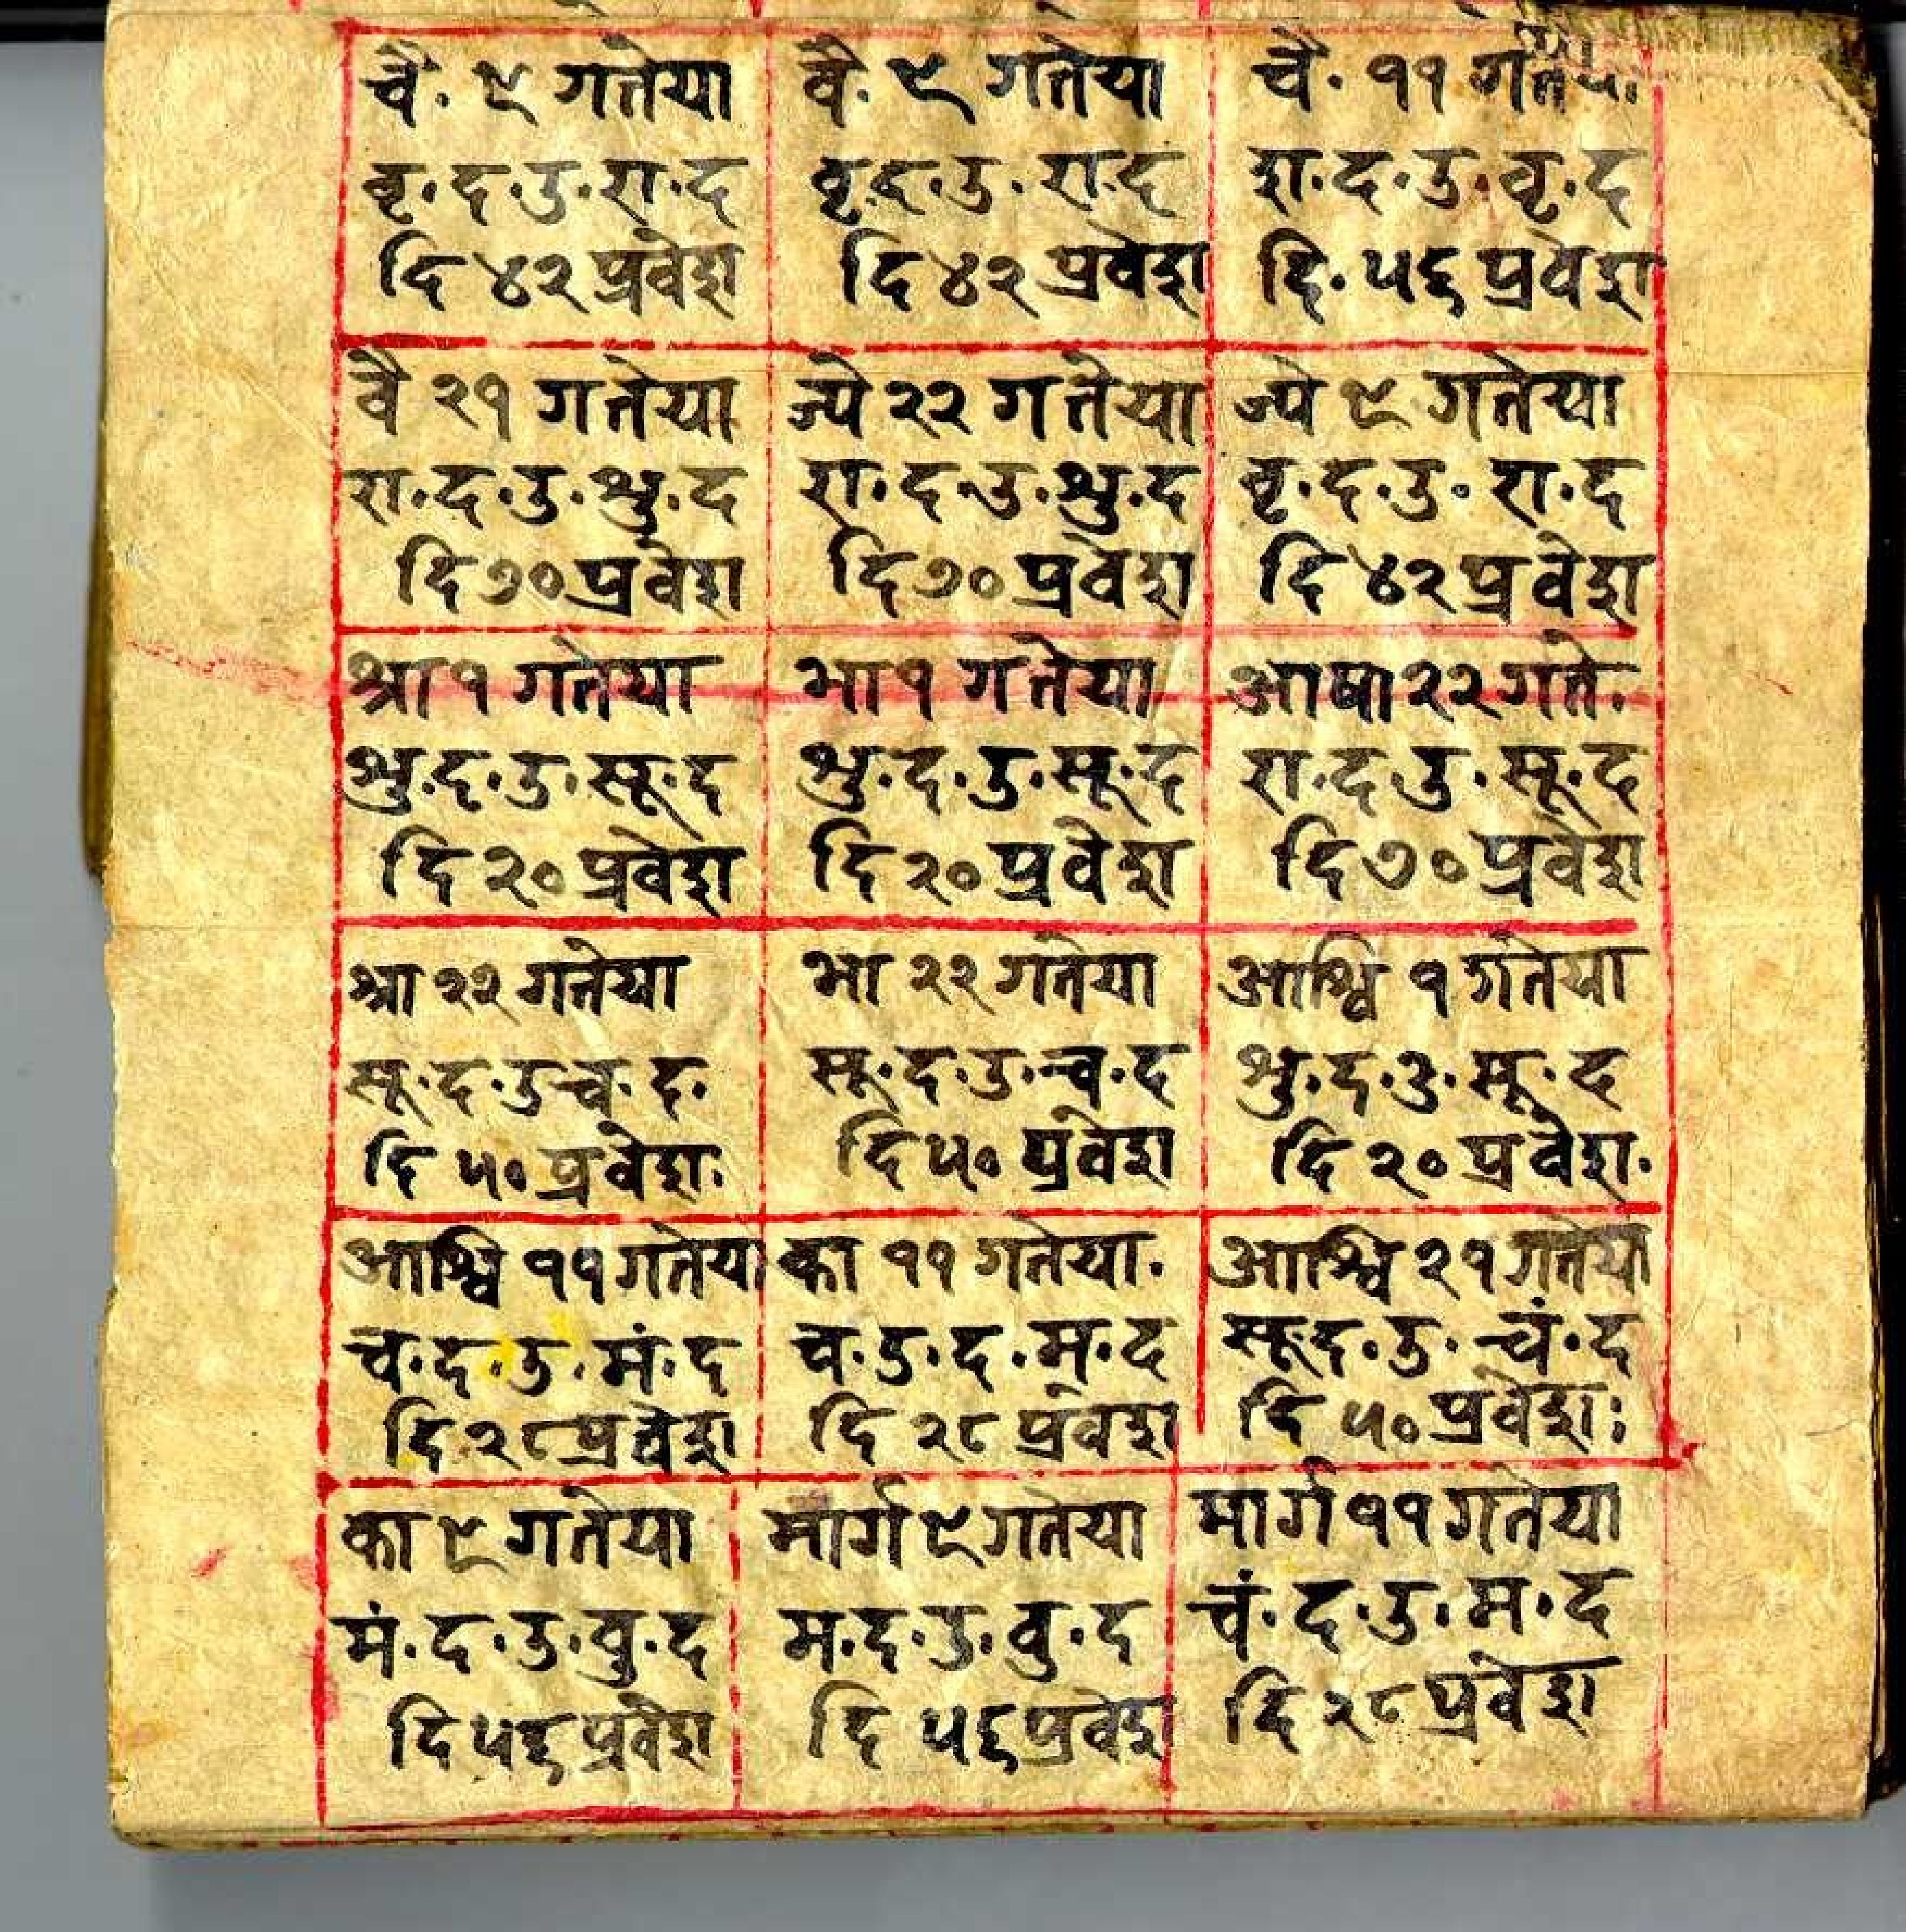 चै. ९ गतेया
वृ. द. उ. रा. द
दि ४२ प्रवेश
वै. ९ गतेया
वृ. द. उ. रा. द
दि ४२ प्रवेश
चै. ११ गतेया
श. द. उ. वृ. द
दि. ५६ प्रवेश
वै २१ गतेया
रा. द. उ. शु. द
दि ७० प्रवेश
ज्ये २२ गतेया
रा. द. उ. शु. द
दि ७० प्रवेश
ज्ये ९ गतेया
वृ. द. उ. रा. द
दि ४२ प्रवेश
श्रा १ गतेया
शु. द. उ. सू. द
दि २० प्रवेश
भा १ गतेया
शु. द. उ. सू. द
दि २० प्रवेश
आषा २२ गते.
रा. द. उ. सू. द
दि ७० प्रवेश
श्रा २२ गतेया
सू. द. उ च. द.
दि ५० प्रवेश:
भा २२ गतेया
सू. द. उ. च. द
दि ५० प्रवेश
आश्वि १ गतेया
शु. द. उ. सू. द
दि २० प्रवेश.
आश्वि ११ गतेया
च. द. उ. मं. द
दि २८ प्रवेश
का ११ गतेया.
च. उ. द. म. द
दि २८ प्रवेश
आश्वि २१ गतेया
सू द. उ. चं. द
दि ५० प्रवेश:
का ९ गतेया
मं. द. उ. वु. द
दि ५६ प्रवेश
मार्ग ९ गतेया
म. द. उ. वु. द
दि ५६ प्रवेश
मार्ग ११ गतेया
चं. द. उ. म. द
दि २८ प्रवेश